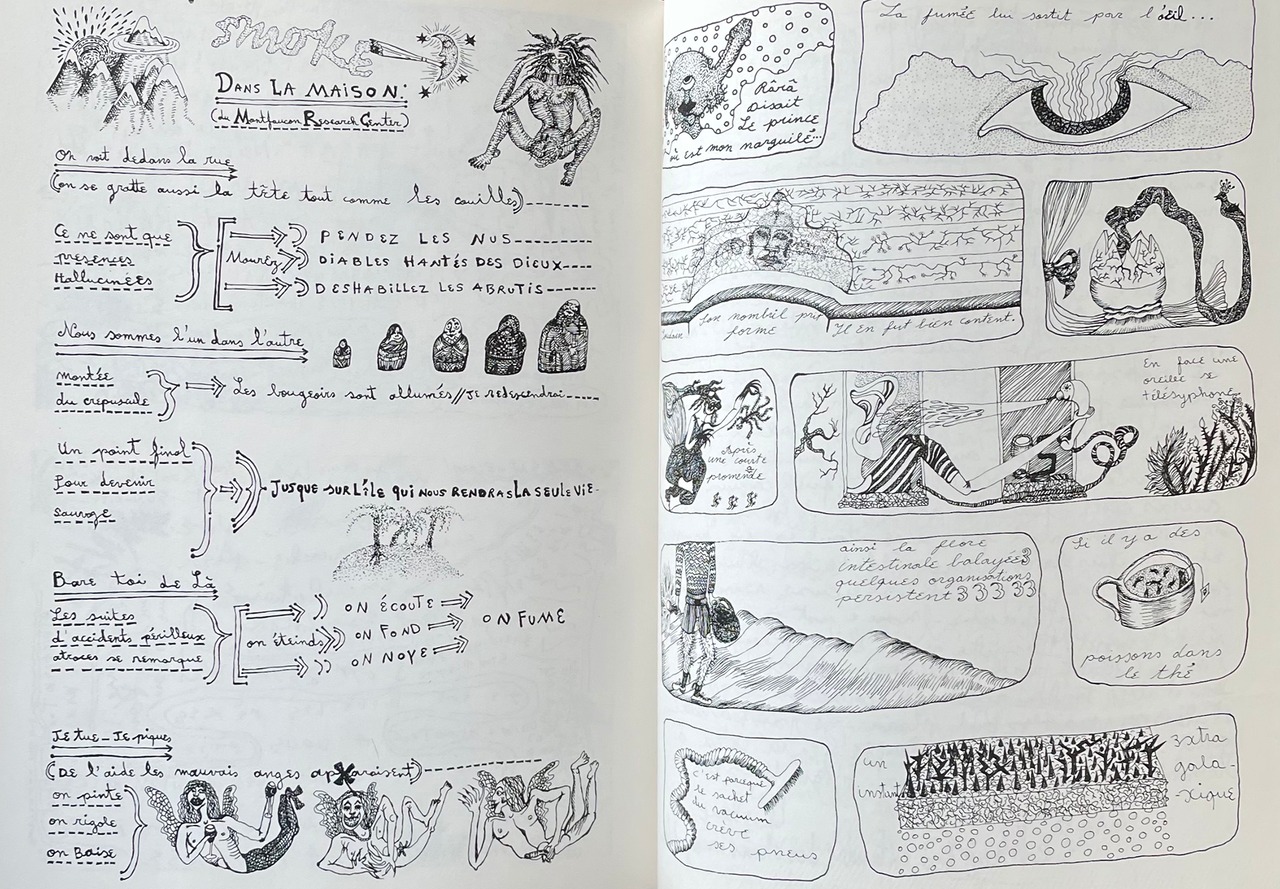 smoke
DANS LA MAISON:
(du Montfaucon Research Center)
On voit dedans la rue
(on se gratte aussi la tête tout comme les couilles)
Ce ne sont que
présences
Hallucinées
Mourez
PENDEZ LES NUS
DIABLES HANTÉS DES DIEUX
DESHABILLEZ LES ABRUTIS
Nous sommes l'un dans l'autre
montée
du crepuscule
Les bougeoirs sont allumés//JE REDESCENDRAI
Un point final
Pour devenir
sauvage
JUSQUE SUR L'ÎLE QUI NOUS RENDRAS LA SEULE VIE
Bare toi de Là
Les suites
d'accidents périlleux
atroces se remarque
on éteinds
ON ÉCOUTE
ON FOND
ON NOYE
ON FUME
Je tue - Je pique
(DE l'aide les mauvais anges apXaraisent)
on pinte
on rigole
on Baise
Rârâ
Disait
Le prince
où est mon narguilé...
La fumée lui sortit par l'œil...
Son nombril prit
forme
Il en fut bien content.
Après
une courte
promenade
En face une
oreille se
télésyphone
ainsi la flore
intestinale balayée3
quelques organisations
persistent 3 3 3 33
Si il y a des
poissons dans
le thé
c'est parceque
le sachet
du vacuum
crève
ses pneus
un
instant
3xtra
gala-
-xique